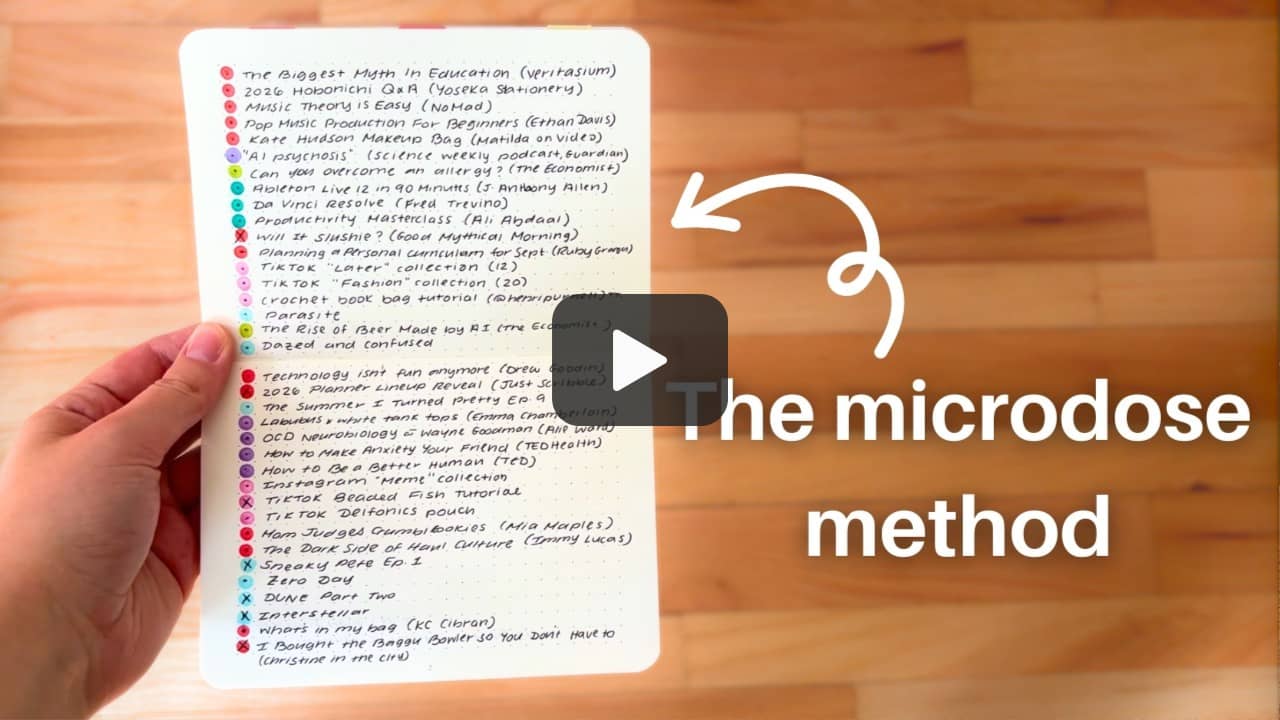 The Biggest Myth In Education (Veritasium)
2026 Hobonichi Q&A (Yoseka Stationery)
Music Theory is Easy (NoMad)
Pop Music Production For Beginners (Ethan Davis)
Kate Hudson Makeup Bag (Matilda on Video)
"AI psychosis" (Science weekly podcast, Guardian)
Can you overcome an allergy? (The Economist)
Ableton Live 12 in 90 Minutes (J. Anthony Allen)
Da Vinci Resolve (Fred Trevino)
Productivity Masterclass (Ali Abdaal)
Will It Slushie? (Good Mythical Morning)
Planning a Personal Curriculum for Sept (Ruby Granger)
TikTok "Later" collection (12)
TikTok "Fashion" collection (20)
Crochet book bag tutorial
Parasite
The Rise of Beer Made by AI (The Economist)
Dazed and Confused
Technology isn't fun anymore (Drew Goodin)
2026 Planner Lineup Reveal (Just Scribble)
The Summer I Turned Pretty Ep. 9
Labubus & white tank tops (Emma Chamberlain)
OCD Neurobiology Wayne Goodman (Alie Ward)
How to Make Anxiety Your Friend (TEDHealth)
How to Be a Better Human (TED)
Instagram "Meme" collection
TikTok Beaded Fish Tutorial
TikTok Delfonics pouch
Mom Judges Crumbl Cookies (Mia Maples)
The Dark Side of Haul Culture (Immy Lucas)
Sneaky Pete Ep. 1
Zero Day
DUNE Part Two
Interstellar
What's in my bag (KC Cibran)
I Bought the Baggu Bowler so You Don't Have to
(Christine in the city)
The microdose
method